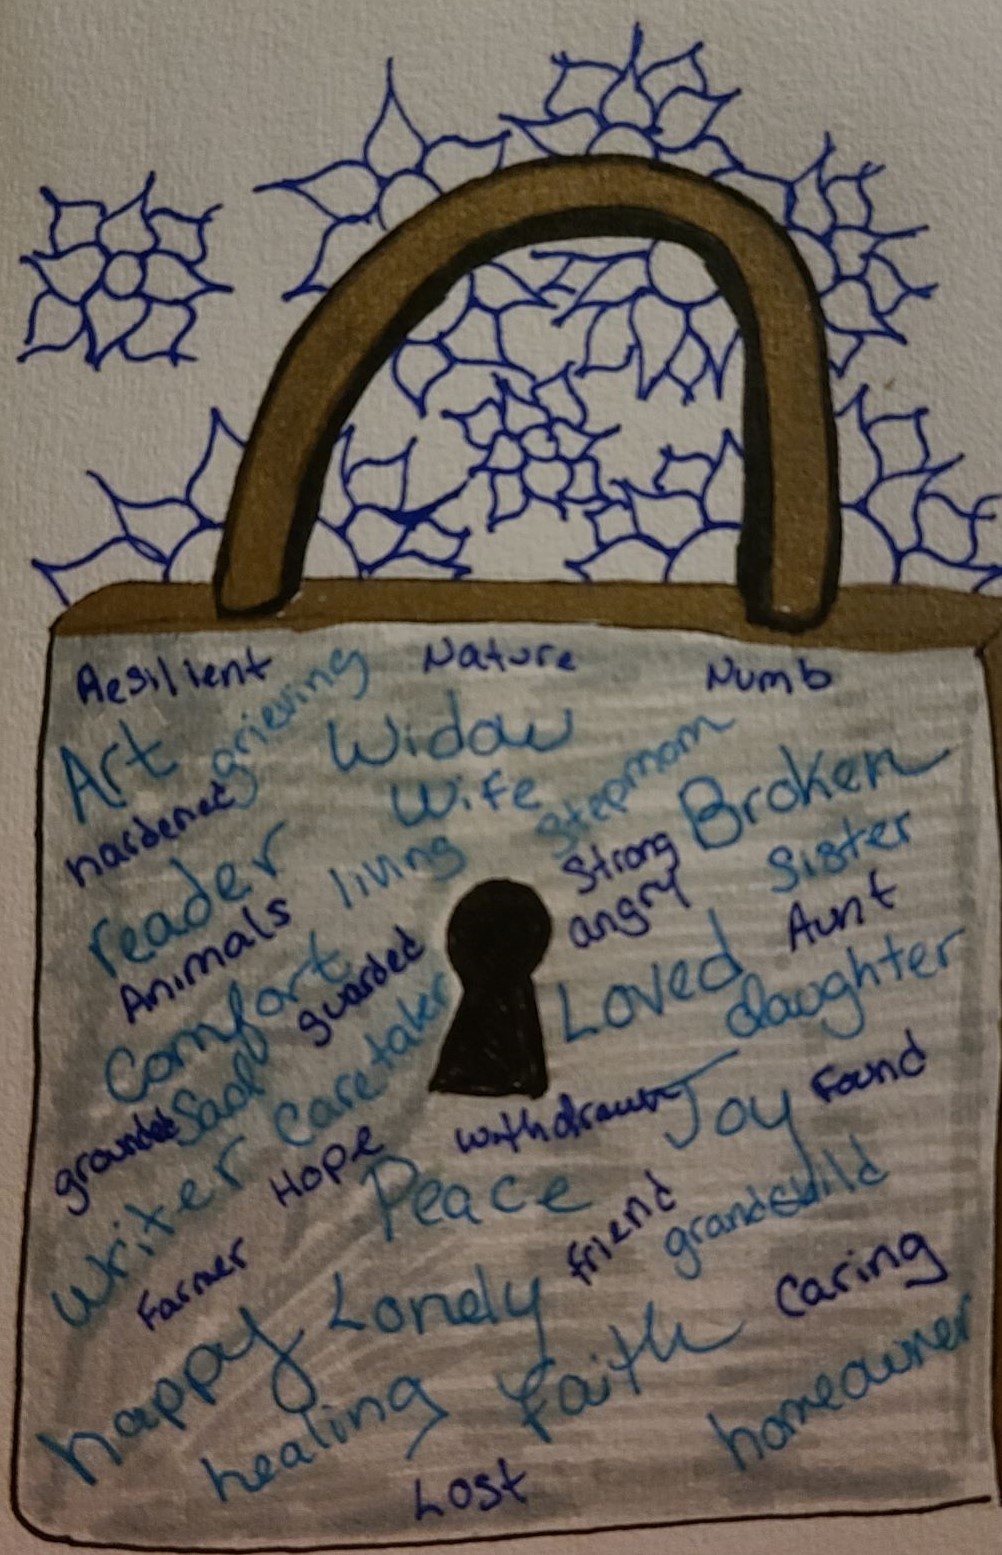 Resilient
grieving
Nature
Numb
Art
Widow
Stepmom
hardened
Wife
Broken
reader
living
Strong
Sister
Animals
angry
Aunt
Comfort
guarded
Loved
daughter
Sad
Caretaker
grounded
withdrawn
Joy
Found
Writer
Hope
Peace
friend
grandchild
Farmer
Caring
happy
Lonely
healing
Faith
homeowner
Lost